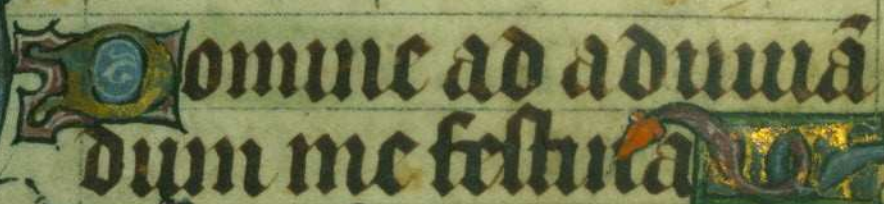 Domine ad adiuuā
dum me festina